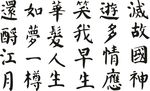 滅故國神
遊多情應
笑我早生
華髮人生
如夢一樽
還酹江月